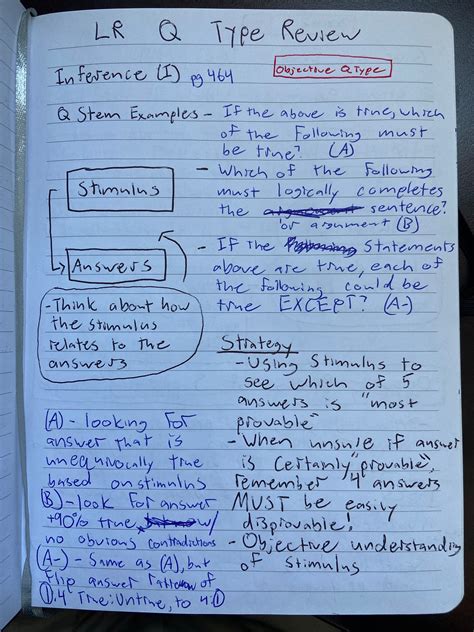 LR Q Type Review
Inference (I) pg 464
Objective Q Type
Q Stem Examples - If the above is true, which
of the following must
be true? (A)
- Which of the following
must logically completes
the sentence?
or argument (B)
- If the statements
above are true, each of
the following could be
true EXCEPT? (A-)
Stimulus
Answers
- Think about how
the stimulus
relates to the
answers
Strategy
- Using Stimulus to
see which of 5
answers is "most
provable"
- When unsure if answer
is certainly "provable",
remember 4 answers
MUST be easily
disprovable!
- Objective understanding
of stimulus
(A) - looking for
answer that is
unequivocally true
based on stimulus
(B) - look for answer
+90% true, w/
no obvious contradictions
(A-) - Same as (A), but
flip answer ratio of
1:4 True:Untrue, to 4:1